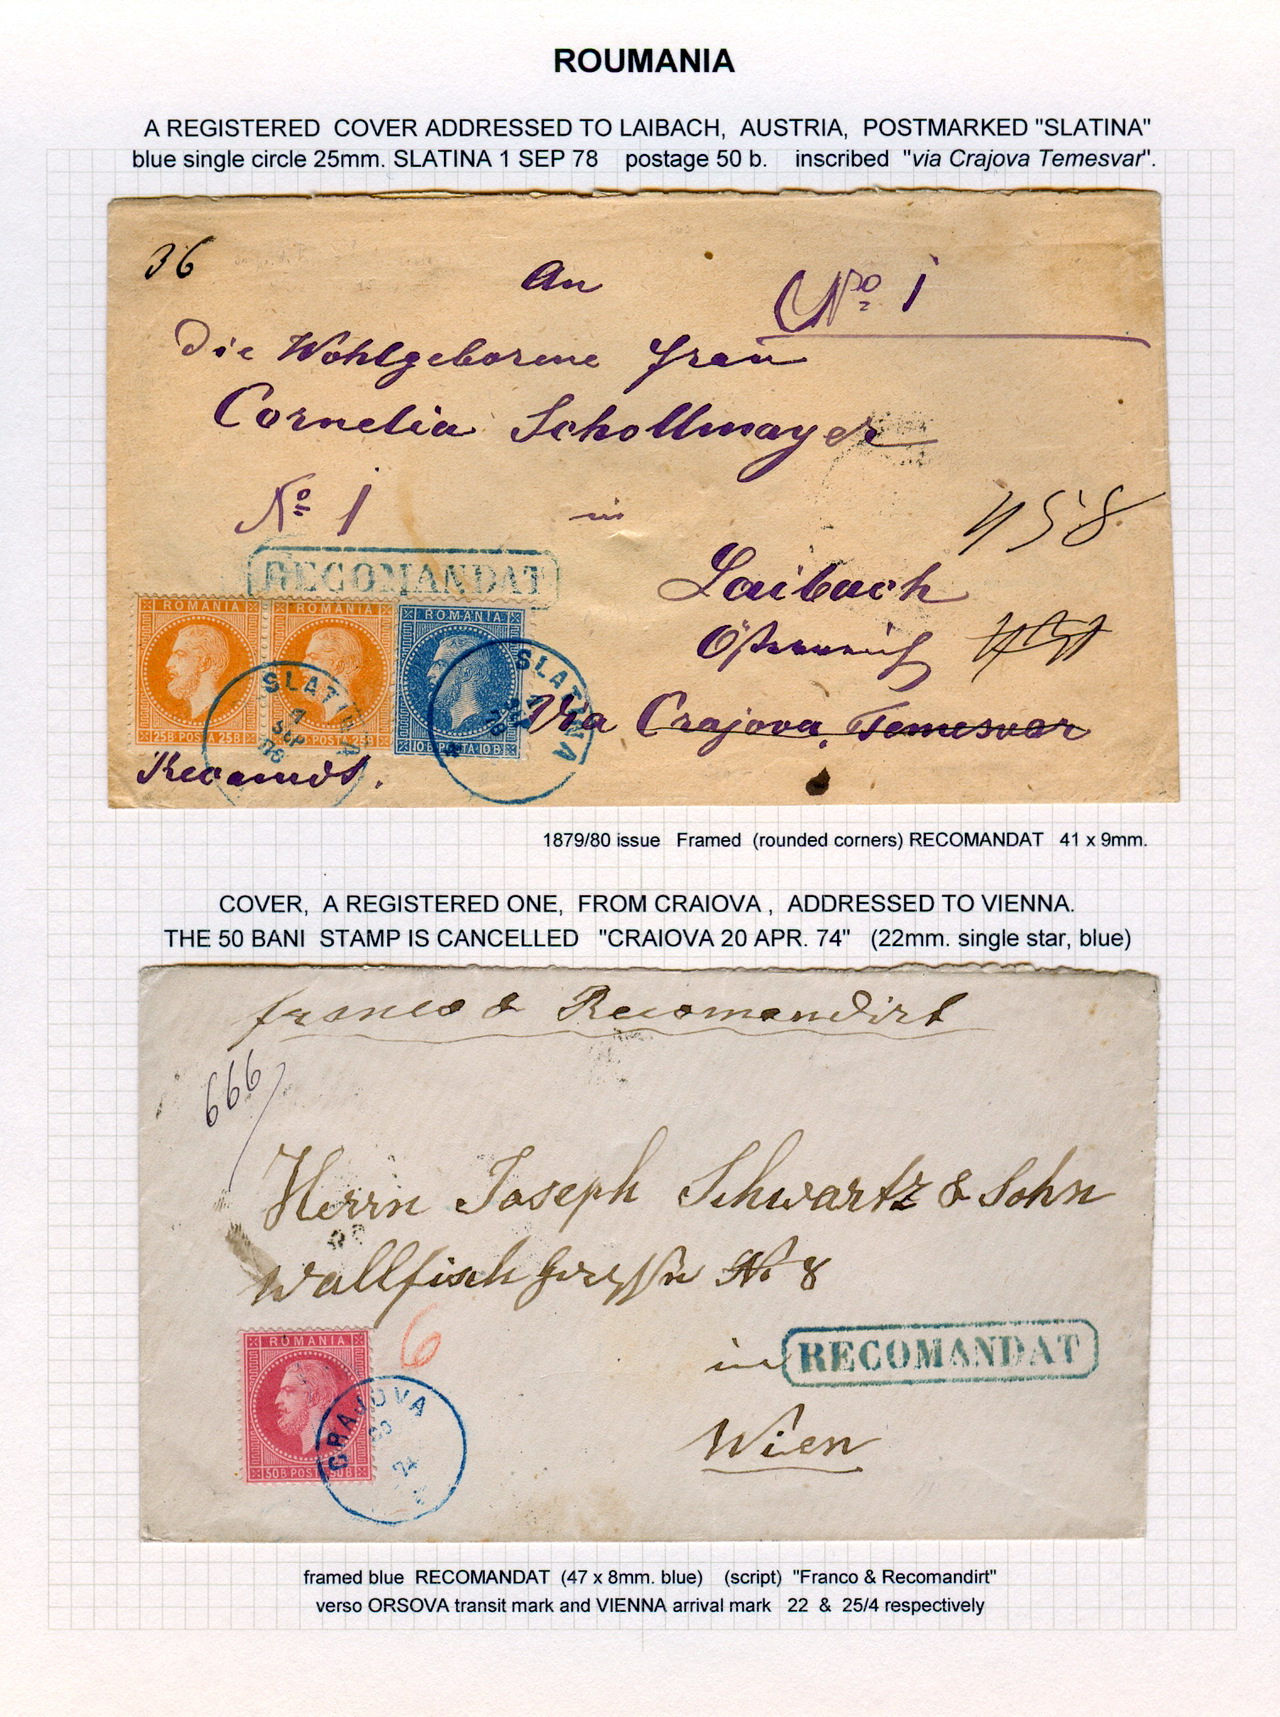 ROUMANIA
A REGISTERED COVER ADDRESSED TO LAIBACH, AUSTRIA, POSTMARKED "SLATINA"
blue single circle 25mm. SLATINA 1 SEP 78 postage 50 b. inscribed "via Crajova Temesvar".
36
An
No 1
Die Wohlgeborene Frau
Cornelia Schollmayer
No 1
in
458
RECOMANDAT
Laibach
ROMANIA ROMANIA ROMANIA
Österreich
SLATINA 1 SEP SLATINA 1 SEP 78
Via Crajova, Temesvar
25B POSTA 25B POSTA 25 10B POSTA 10B
Recomdt.
1879/80 issue Framed (rounded corners) RECOMANDAT 41 x 9mm.
COVER, A REGISTERED ONE, FROM CRAIOVA , ADDRESSED TO VIENNA.
THE 50 BANI STAMP IS CANCELLED "CRAIOVA 20 APR. 74" (22mm. single star, blue)
franco & Recomandirt
666
Herrn Joseph Schwartz & Sohn
Wallfischgasse No 8
ROMANIA
6
in
RECOMANDAT
CRAJOVA
50B POST 50B
Wien
framed blue RECOMANDAT (47 x 8mm. blue) (script) "Franco & Recomandirt"
verso ORSOVA transit mark and VIENNA arrival mark 22 & 25/4 respectively